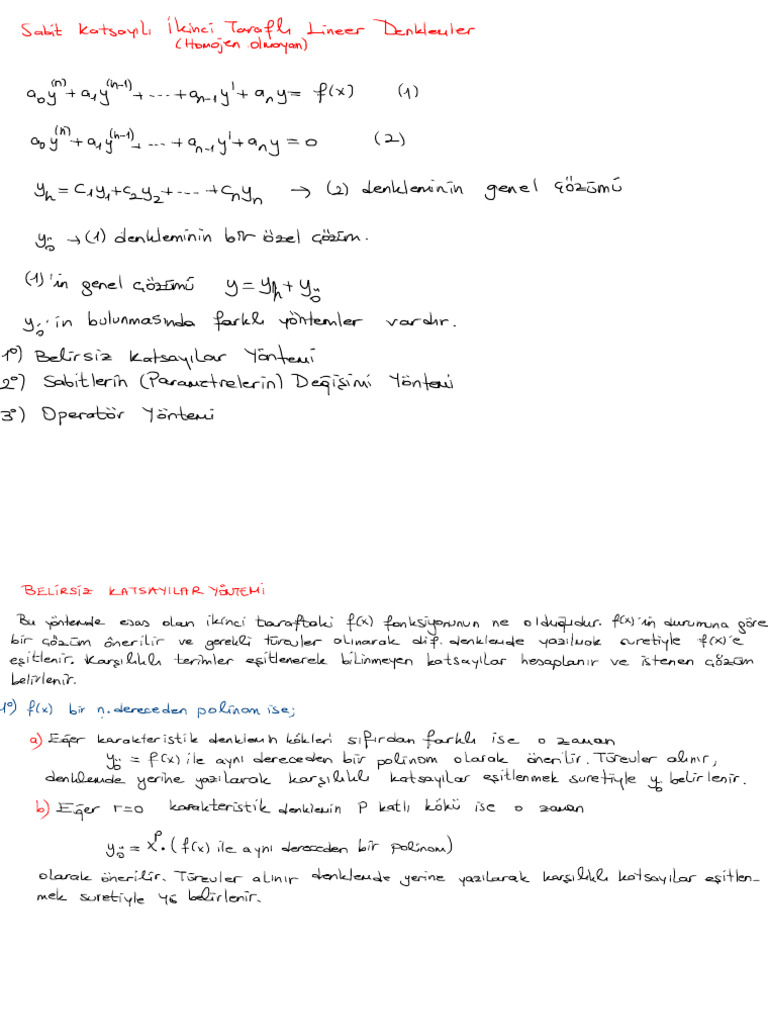 Sabit Katsayılı İkinci Taraflı Lineer Denklemler
(Homojen olmayan)
a₀y⁽ⁿ⁾+a₁y⁽ⁿ⁻¹⁾+...+aₙ₋₁y'+aₙy = f(x) (1)
a₀y⁽ⁿ⁾+a₁y⁽ⁿ⁻¹⁾+...+aₙ₋₁y'+aₙy = 0 (2)
yₕ = c₁y₁+c₂y₂+...+cₙyₙ → (2) denkleminin genel çözümü
y_ö → (1) denkleminin bir özel çözüm.
(1)'in genel çözümü y = yₕ + y_ö
y_ö'in bulunmasında farklı yöntemler vardır.
1°) Belirsiz Katsayılar Yöntemi
2°) Sabitlerin (Parametrelerin) Değişimi Yöntemi
3°) Operatör Yöntemi
BELİRSİZ KATSAYILAR YÖNTEMİ
Bu yöntemde esas olan ikinci taraftaki f(x) fonksiyonunun ne olduğudur. f(x)'in durumuna göre
bir çözüm önerilir ve gerekli türevler alınarak dif. denklemde yazılmak suretiyle f(x)'e
eşitlenir. Karşılıklı terimler eşitlenerek bilinmeyen katsayılar hesaplanır ve istenen çözüm
belirlenir.
1°) f(x) bir n. dereceden polinom ise;
a) Eğer karakteristik denklemin kökleri sıfırdan farklı ise o zaman
y_ö = f(x) ile aynı dereceden bir polinom olarak önerilir. Türevler alınır,
denklemde yerine yazılarak karşılıklı katsayılar eşitlenmek suretiyle y_ö belirlenir.
b) Eğer r=0 karakteristik denklemin p katlı kökü ise o zaman
y_ö = xᵖ.(f(x) ile aynı dereceden bir polinom)
olarak önerilir. Türevler alınır denklemde yerine yazılarak karşılıklı katsayılar eşitlen-
mek suretiyle yö belirlenir.